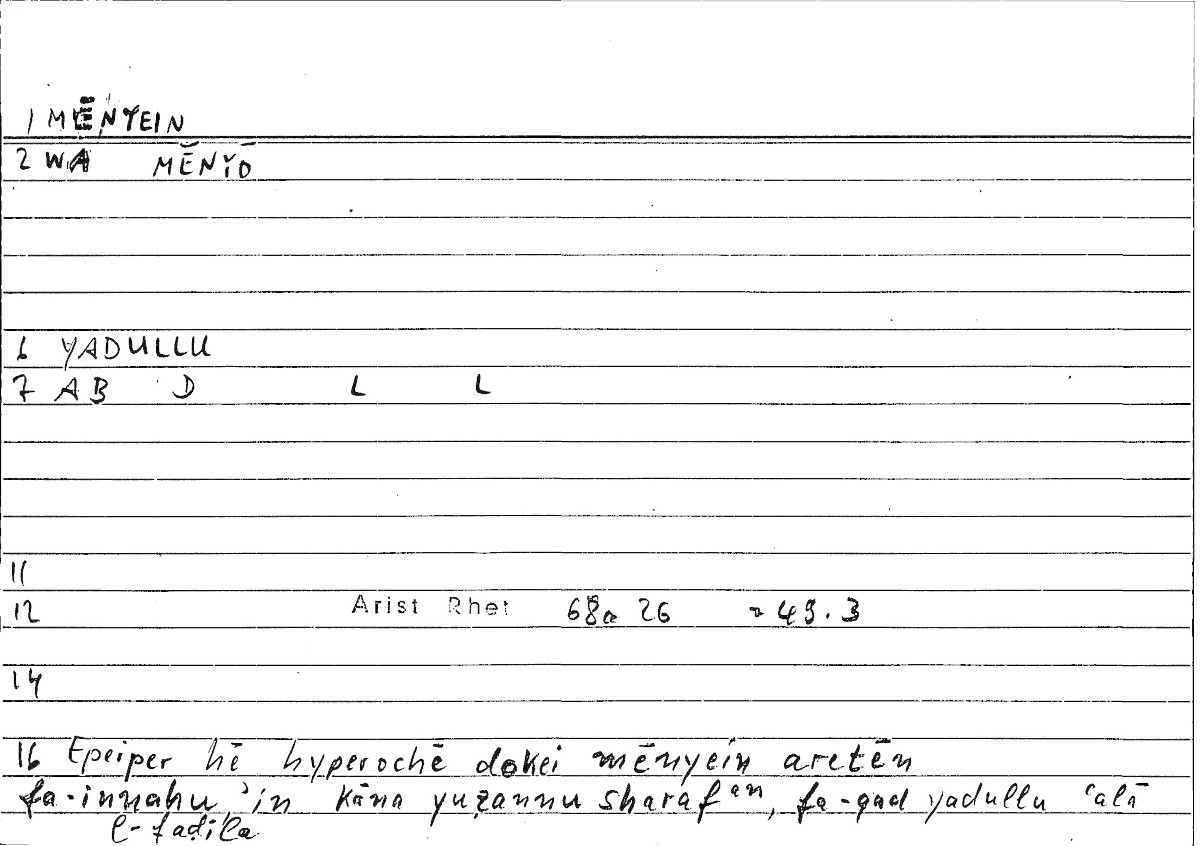 1 MĒNYEIN
2 WA MĒNY̌Ō
6 YADULLU
7 AB D L L
11
12 Arist Rhet 68a 26 = 49.3
14
16 Epeiper hē hyperochē dokei mēnyein aretēn
fa-innahu ʾin kāna yuẓannu sharafᵃⁿ, fa-qad yadullu ʿalā
l-faḍīla